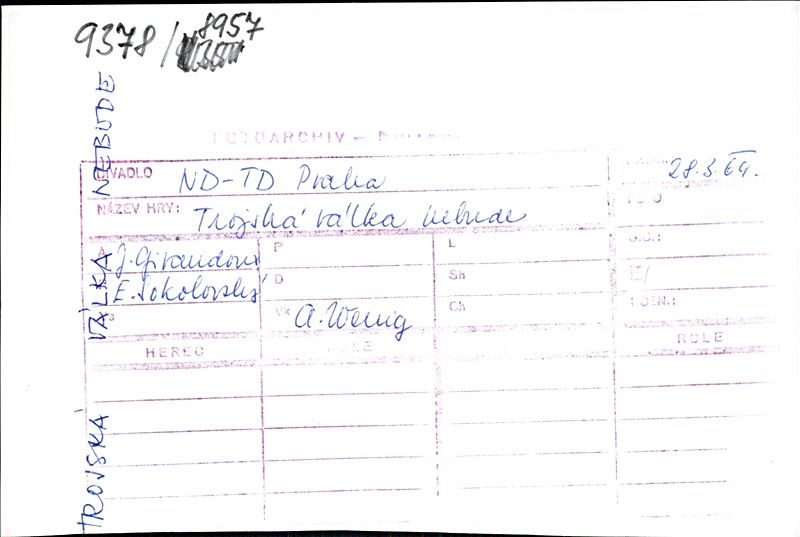 9378/8957
TROJSKÁ VÁLKA NEBUDE
FOTOARCHIV –
DIVADLO ND-TD Praha
28.3.64.
NÁZEV HRY: Trojská válka nebude
FOTO
A J. Giraudoux P L S.J.:
E. Sokolovský D Sh
Vk A. Wenig Ch
HEREC ROLE ROLE